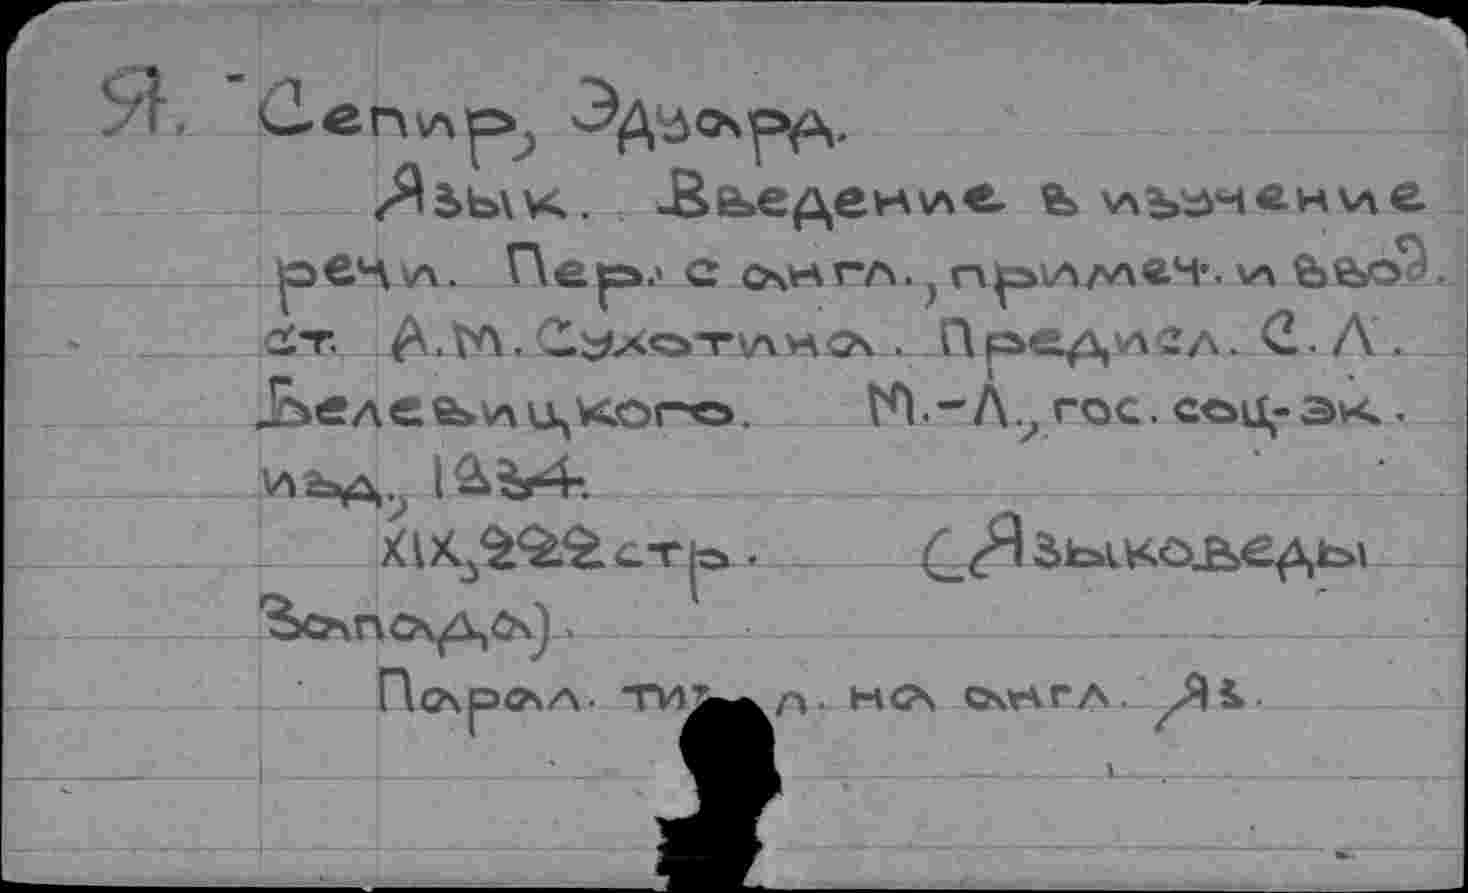 Я. Сепир, Эдуард.
Язык. Введение в изучение
речи. Пер. с англ., примеч. и ввод.
ст. А.М. Сухотина. Предисл. С.Л.
Белевицкого. М.-Л., гос. соц-эк.
изд., 1934.
XIX, 222 стр. (Языковеды
Запада).
Парал. на англ. яз.